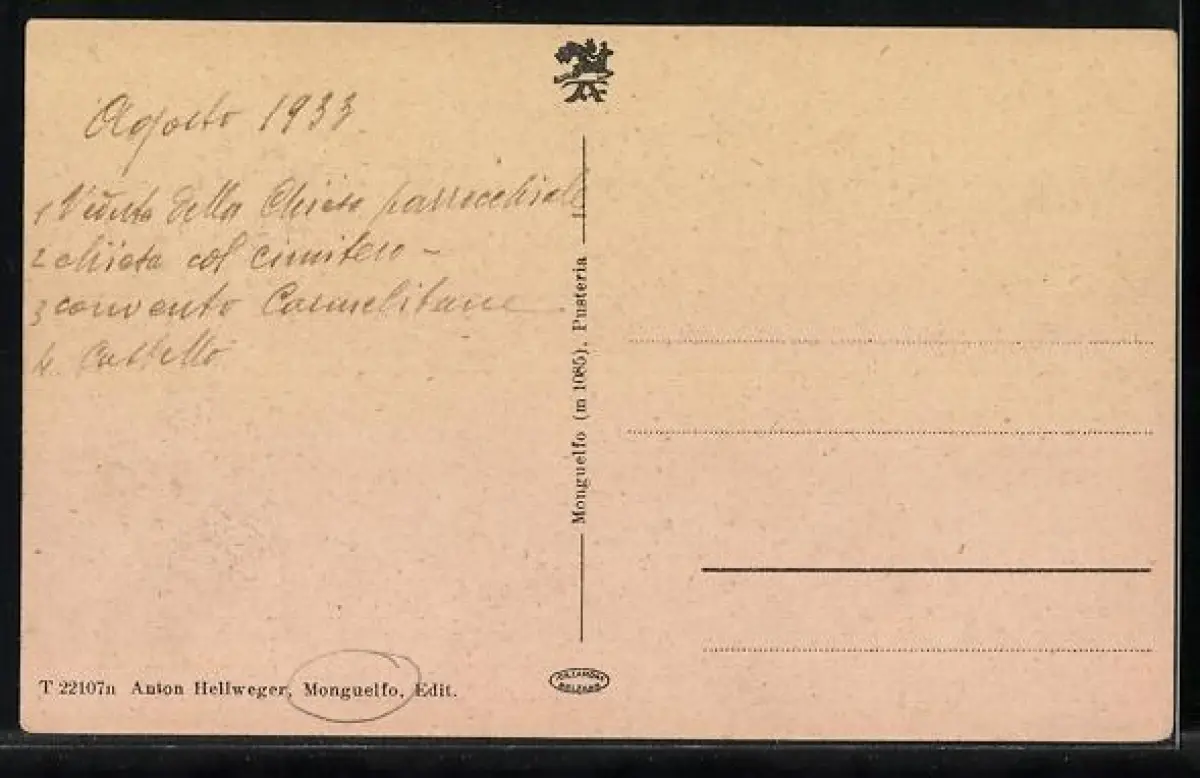 Agosto 1933
1 Veduta della Chiesa parrocchiale
2 chiesa col cimitero -
3 convento Carmelitane
4. Castello
Monguelfo (m 1085), Pusteria
T 22107n Anton Hellweger, Monguelfo, Edit.